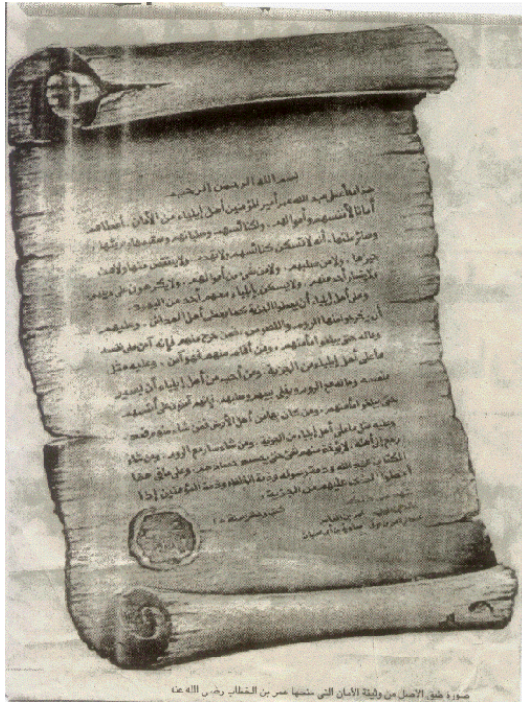 بسم الله الرحمن الرحيم
هذا ما أعطى عبد الله عمر أمير المؤمنين أهل إيلياء من الأمان. أعطاهم
أمانا لأنفسهم وأموالهم. ولكنائسهم وصلبانهم وسقيمها وبريئها
وسائر ملتها. أنه لا تسكن كنائسهم ولا تهدم. ولا ينتقص منها ولا من
حيزها. ولا من صليبهم. ولا من شيء من أموالهم. ولا يكرهون على دينهم
ولا يضار أحد منهم. ولا يسكن بإيلياء معهم أحد من اليهود.
وعلى أهل إيلياء أن يعطوا الجزية كما يعطي أهل المدائن. وعليهم
أن يخرجوا منها الروم واللصوص. فمن خرج منهم فإنه آمن على نفسه
وماله حتى يبلغوا مأمنهم. ومن أقام منهم فهو آمن. وعليه مثل
ما على أهل إيلياء من الجزية. ومن أحب من أهل إيلياء أن يسير
بنفسه وماله مع الروم ويخلي بيعهم وصلبهم. فإنهم آمنون على أنفسهم
حتى يبلغوا مأمنهم. ومن كان بها من أهل الأرض فمن شاء منهم قعد.
وعليه مثل ما على أهل إيلياء من الجزية. ومن شاء سار مع الروم. ومن شاء
رجع إلى أهله. لا يؤخذ منهم شيء حتى يحصد حصادهم. وعلى ما في هذا
الكتاب عهد الله وذمة رسوله وذمة الخلفاء وذمة المؤمنين إذا
أعطوا الذي عليهم من الجزية.
صورة طبق الأصل من وثيقة الأمان التي منحها عمر بن الخطاب رضي الله عنه